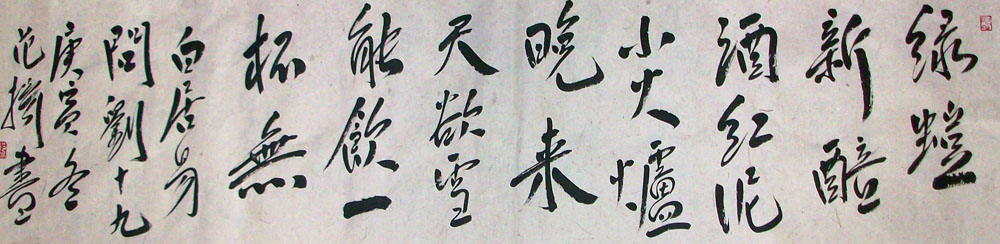 绿螘
新醅
酒红泥
小火爐
晚来
天欲雪
能飲一
杯無
白居易
問劉十九
庚寅冬
范書